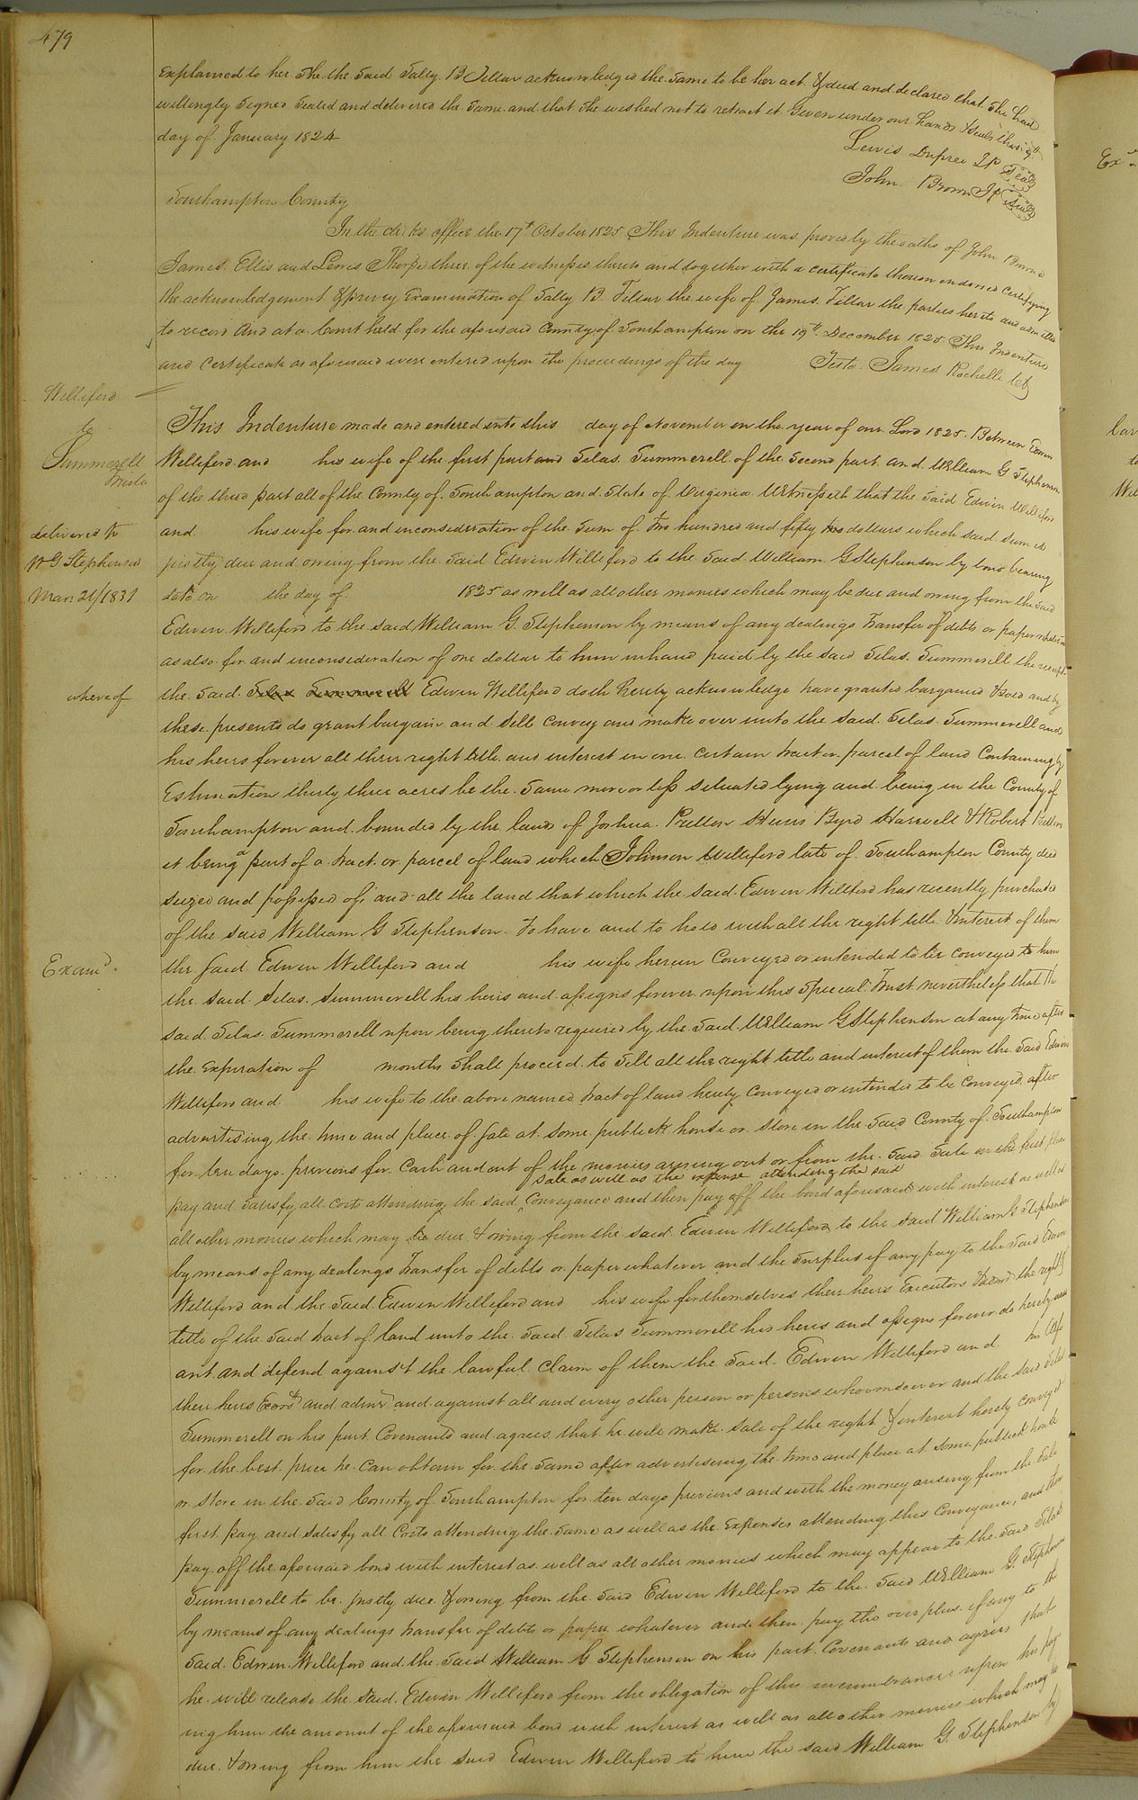 479
explained to her She the Said Sally B Fillar acknowledged the Same to be her act & deed and declared that She had
willingly Signed Sealed and delivered the Same and that She wished not to retract it Given under our hands & Seals this 9th
day of January 1824
Lewis Dupree JP Seal
John Brown JP Seal
Southampton County
In the clerks office the 17th October 1825 This Indenture was proved by the oaths of John Brown
James Ellis and Lewis Thorpe three of the witnesses thereto and together with a certificate thereon endorsed certifying
the acknowledgement & privy Examination of Sally B. Fillar the wife of James Fillar the parties hereto and admitted
to record And at a Court held for the aforesaid County of Southampton on the 19th December 1825 This Indenture
and Certificate as aforesaid were entered upon the proceedings of the day Teste James Rochelle Clk
Williford
to
Summerell
Trust
This Indenture made and entered into this day of November in the year of our Lord 1825. Between Edwin
Williford and his wife of the first part and Silas Summerell of the Second part and William G Stephenson
of the third part all of the County of Southampton and State of Virginia Witnesseth that the Said Edwin Williford
delivered to
and his wife for and inconsideration of the Sum of Two hundred and fifty two dollars which said sum is
W G Stephenson
justly due and owing from the Said Edwin Williford to the Said William G Stephenson by bond bearing
Mar. 21/1831
date on the day of 1825 as well as all other monies which may be due and owing from the Said
Edwin Williford to the said William G. Stephenson by means of any dealings Transfer of debts or paper whatever
as also for and inconsideration of one dollar to him in hand paid by the Said Silas Summerell the receipt
whereof
the Said Silas Summerell Edwin Williford doth hereby acknowledge have granted bargained & sold and by
these presents do grant bargain and Sell Convey and make over unto the Said Silas Summerell and
his heirs forever all their right title and interest in one certain tract or parcel of land Containing by
Estimation thirty three acres be the Same more or less situated lying and being in the County of
Southampton and bounded by the lands of Joshua Pretlow Byrd Harwell & Robert
it being a part of a tract or parcel of land which Johnson Williford late of Southampton County died
seized and possessed of and all the land that which the said Edwin Williford has recently purchased
of the said William G Stephenson To have and to hold with all the right title & interest of them
Examd.
the said Edwin Williford and his wife herein Conveyed or intended to be conveyed to him
the said Silas Summerell his heirs and assigns forever upon this Special Trust nevertheless that the
said Silas Summerell upon being thereto required by the Said William G Stephenson at any time after
the expiration of months Shall proceed to Sell all the right title and interest of them the Said Edwin
Williford and his wife to the above named tract of land hereby Conveyed or intended to be Conveyed after
advertising the time and place of Sale at some publick house or Store in the Said County of Southampton
for ten days previous for Cash and out of the monies arising out or from the Said Sale in the first place
Sale as well as the expense attending the said
pay and Satisfy all cost attending the said Conveyance and then pay off the bond aforesaid with interest as well as
all other monies which may be due & owing from the said Edwin Williford to the said William G Stephenson
by means of any dealings transfer of debts or paper whatever and the Surplus if any pay to the said Edwin
Williford and the said Edwin Williford and his wife for themselves their heirs Executors the right &
title of the said tract of land unto the Said Silas Summerell his heirs and assigns forever do hereby
ant and defend against the lawful claim of them the Said Edwin Williford and his wife
their heirs Exors and admrs and against all and every other person or persons whomsoever and the said Silas
Summerell on his part Covenants and agrees that he will make Sale of the right & interest hereby conveyed
for the best price he can obtain for the Same after advertising the time and place at some publick house
or Store in the Said County of Southampton for ten days previous and with the money arising from the sale
first pay and Satisfy all Costs attending the Same as well as the Expenses attending this Conveyance, and then
pay off the aforesaid bond with interest as well as all other monies which may appear to the Said Silas
Summerell to be justly due & owing from the Said Edwin Williford to the Said William G Stephenson
by means of any dealings transfer of debts or paper whatever and then pay the overplus if any to the
Said Edwin Williford and the Said William G Stephenson on his part Covenants and agrees that
he will release the Said Edwin Williford from the obligation of this incumbrance upon his pay
ing him the amount of the aforesaid bond with interest as well as all other monies which may be
due & owing from him the Said Edwin Williford to him the said William G. Stephenson by